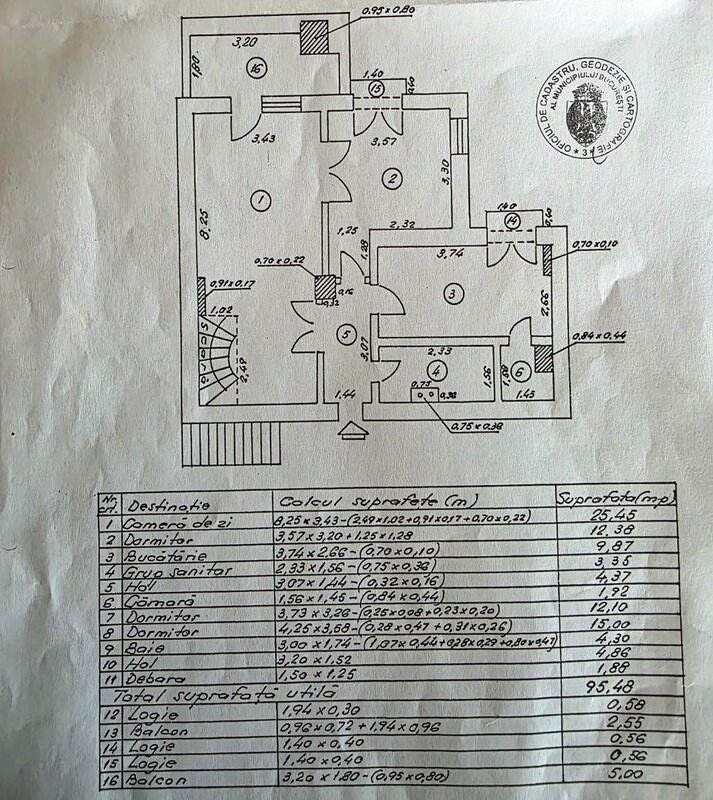 0.95 x 0.80
3,20
1,80
16
1.40
15
0.40
OFICIUL DE CADASTRU, GEODEZIE ȘI CARTOGRAFIE
AL MUNICIPIULUI BUCUREȘTI
* 3 *
3,43
3,57
2
3,30
1
8,25
1,25
2,32
1,28
1,40
14
0,40
3,74
0,70 x 0,10
0.70 x 0,22
0,91 x 0.17
1,02
0,16
0,32
3
2,66
5
3,07
0,84 x 0.44
2,49
2,33
4
1,56
1,58
6
0,75
0,36
1.45
1,44
0.75 x 0.36
Nr. crt. Destinație Calcul suprafețe (m) Suprafața (mp)
1 Cameră de zi 8,25 x 3,43 - (2,49 x 1.02 + 0,91 x 0,17 + 0,70 x 0,22) 25.45
2 Dormitor 3,57 x 3,20 + 1.25 x 1.28 12.38
3 Bucătărie 3,74 x 2,66 - (0,70 x 0,10) 9,87
4 Grup sanitar 2,33 x 1,56 - (0,75 x 0,36) 3,35
5 Hol 3,07 x 1,44 - (0,32 x 0,16) 4,37
6 Cămară 1,56 x 1.45 - (0,84 x 0,44) 1,92
7 Dormitor 3,73 x 3,26 - (0,25 x 0,08 + 0,23 x 0,20) 12,10
8 Dormitor 4,25 x 3,58 - (0,28 x 0,47 + 0,31 x 0,26) 15,00
9 Baie 3,00 x 1,74 - (1,07 x 0,44 + 0,28 x 0,29 + 0,80 x 0,47) 4,30
10 Hol 3,20 x 1,52 4,86
11 Debara 1,50 x 1.25 1,88
Total suprafață utilă 95,48
12 Logie 1,94 x 0,30 0,58
13 Balcon 0,96 x 0,72 + 1,94 x 0,96 2,55
14 Logie 1.40 x 0,40 0,56
15 Logie 1.40 x 0,40 0,56
16 Balcon 3,20 x 1.80 - (0,95 x 0,80) 5,00